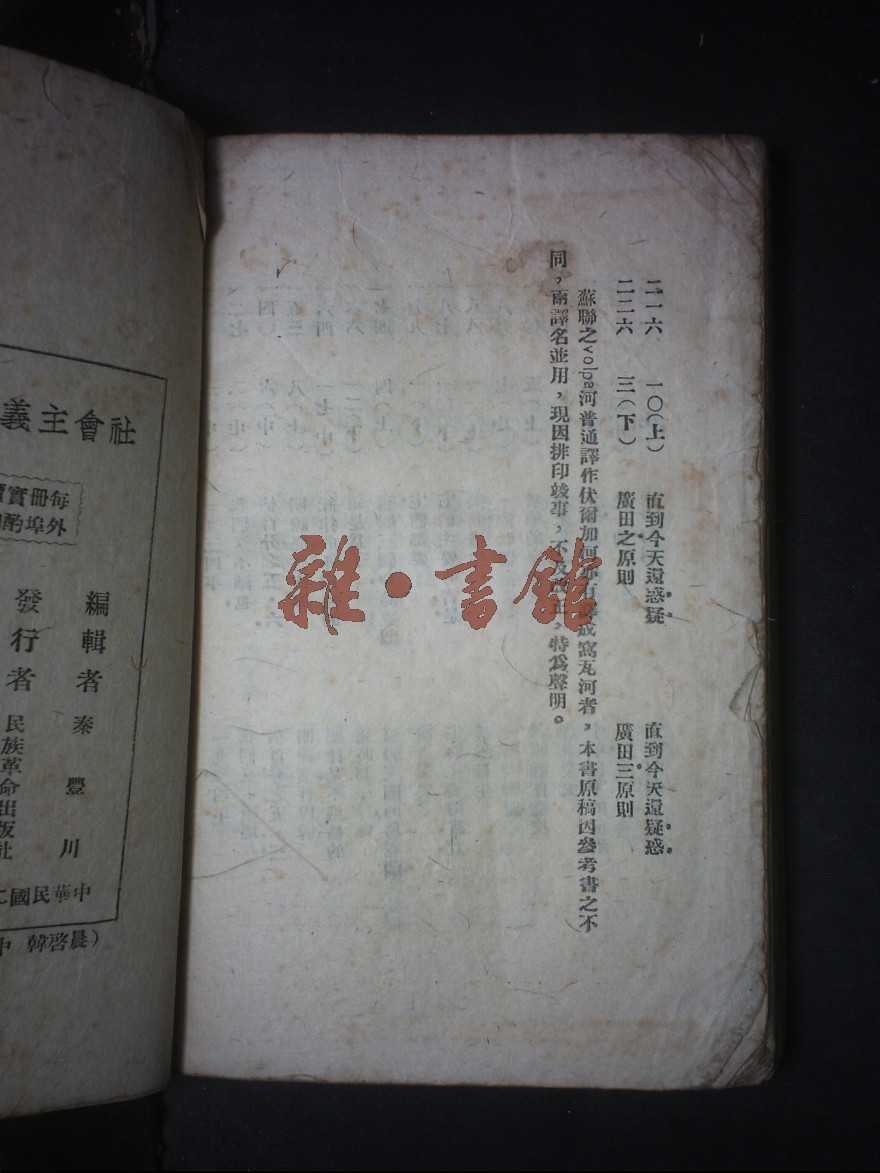 二一六　一〇(上)　直到今天還惑疑　直到今天還疑惑
二二六　三(下)　廣田之原則　廣田三原則
蘇聯之volpa河普通譯作伏爾加河亦有譯成窩瓦河者，本書原稿因參考書之不
同，兩譯名並用，現因排印竣事，不及改正，特爲聲明。
雜·書館
社會主義
每冊實
外埠酌
編輯者　秦豐川
發行者　民族革命出版社
中華民國二
(晨啓韓中